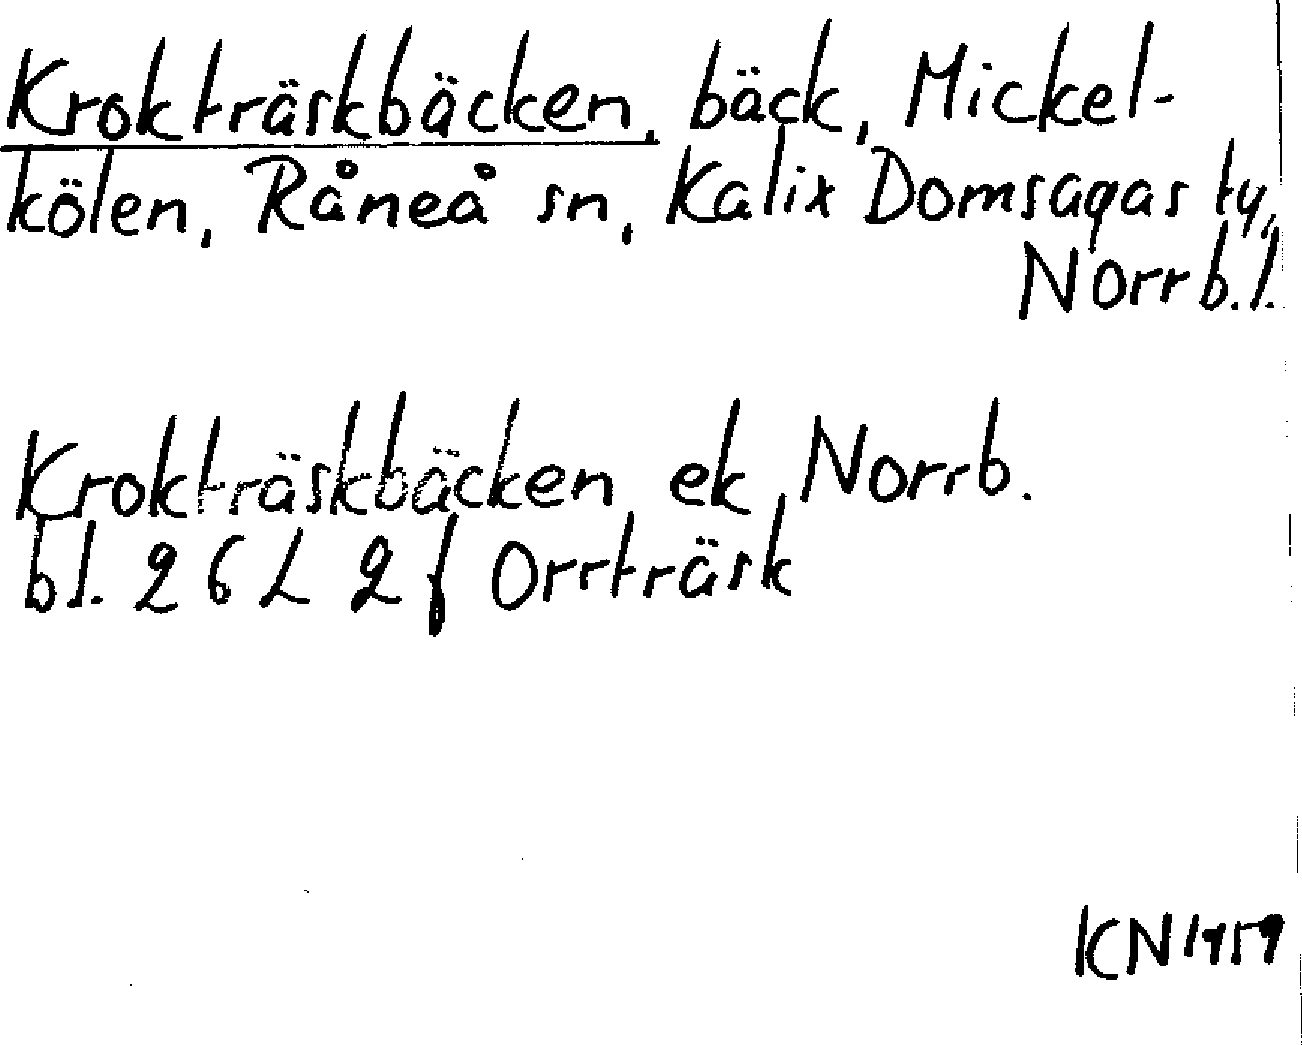 Krokträskbäcken, bäck, Mickel-
kölen, Råneå sn, Kalix Domsagas ty,
Norrb.l.
Krokträskbäcken ek, Norrb.
bl. 26 L 2 f Orrträsk
KN 1959